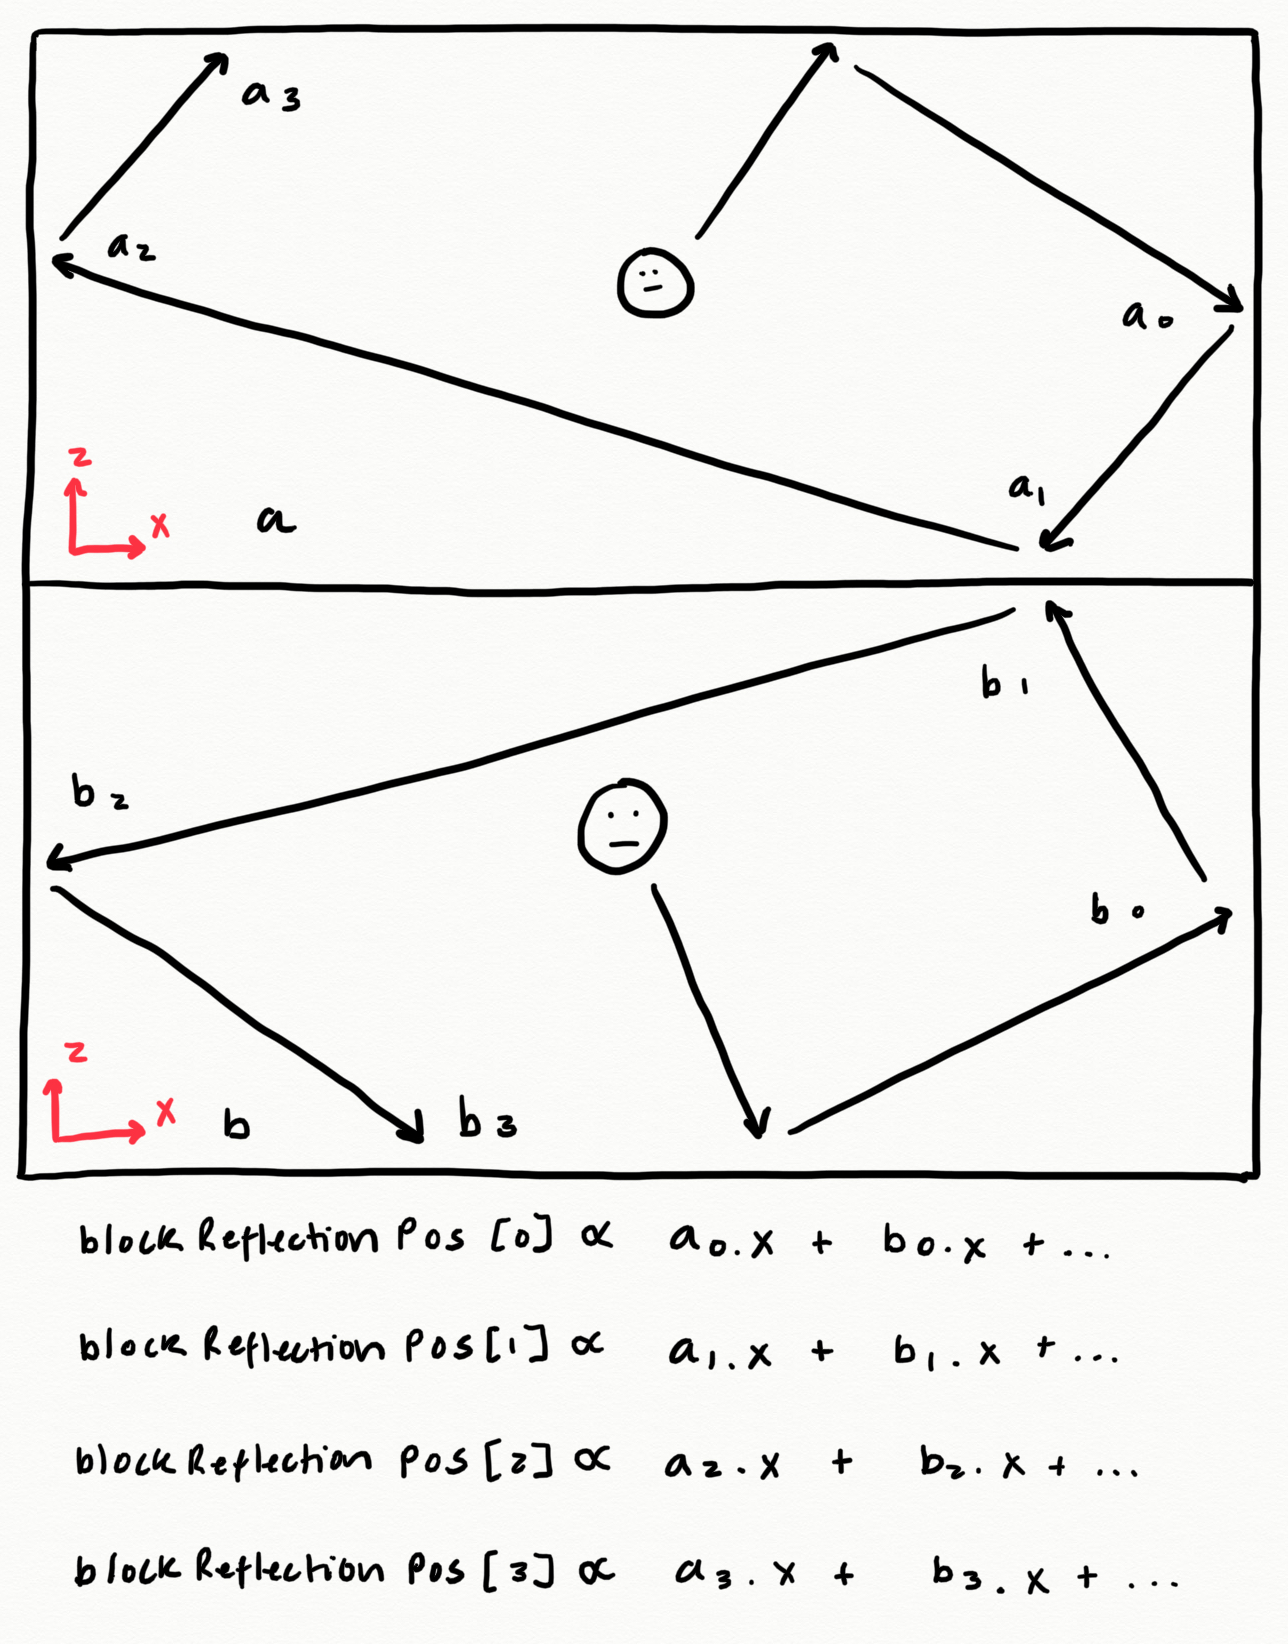 a3
a2
a0
a1
z
x
a
b1
b2
b0
z
x
b
b3
blockReflectionPos[0] ∝ a0.x + b0.x + ...
blockReflectionPos[1] ∝ a1.x + b1.x + ...
blockReflectionPos[2] ∝ a2.x + b2.x + ...
blockReflectionPos[3] ∝ a3.x + b3.x + ...